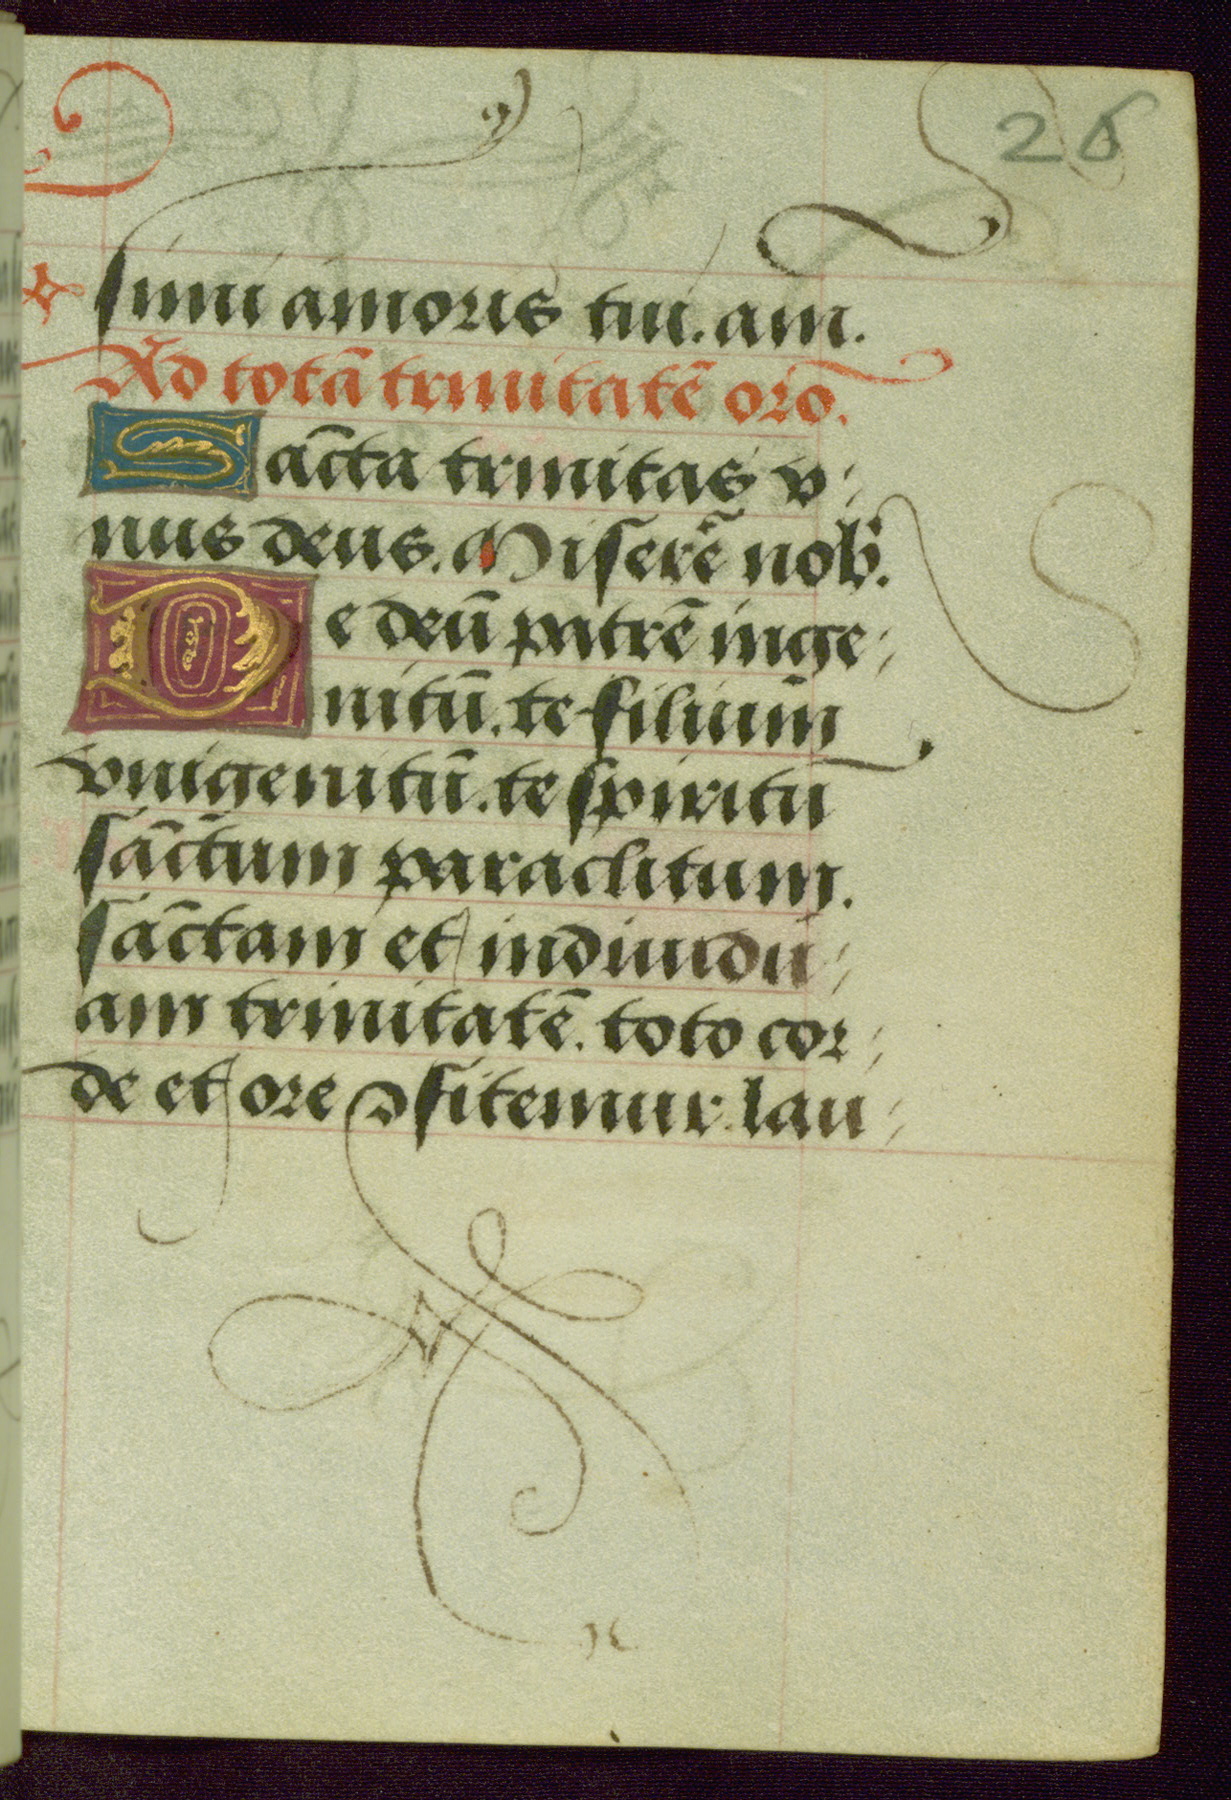 26
simi amoris tui. am.
Ad totā trinitatē oro.
Sancta trinitas v-
nus deus. Miserē nob'.
Te deū patrē inge-
nitū. te filium
vnigenitū. te spiritū
sāctum paraclitum.
sāctam et indiuidu-
am trinitatē. toto cor-
de et ore ꝯfitemur. lau-